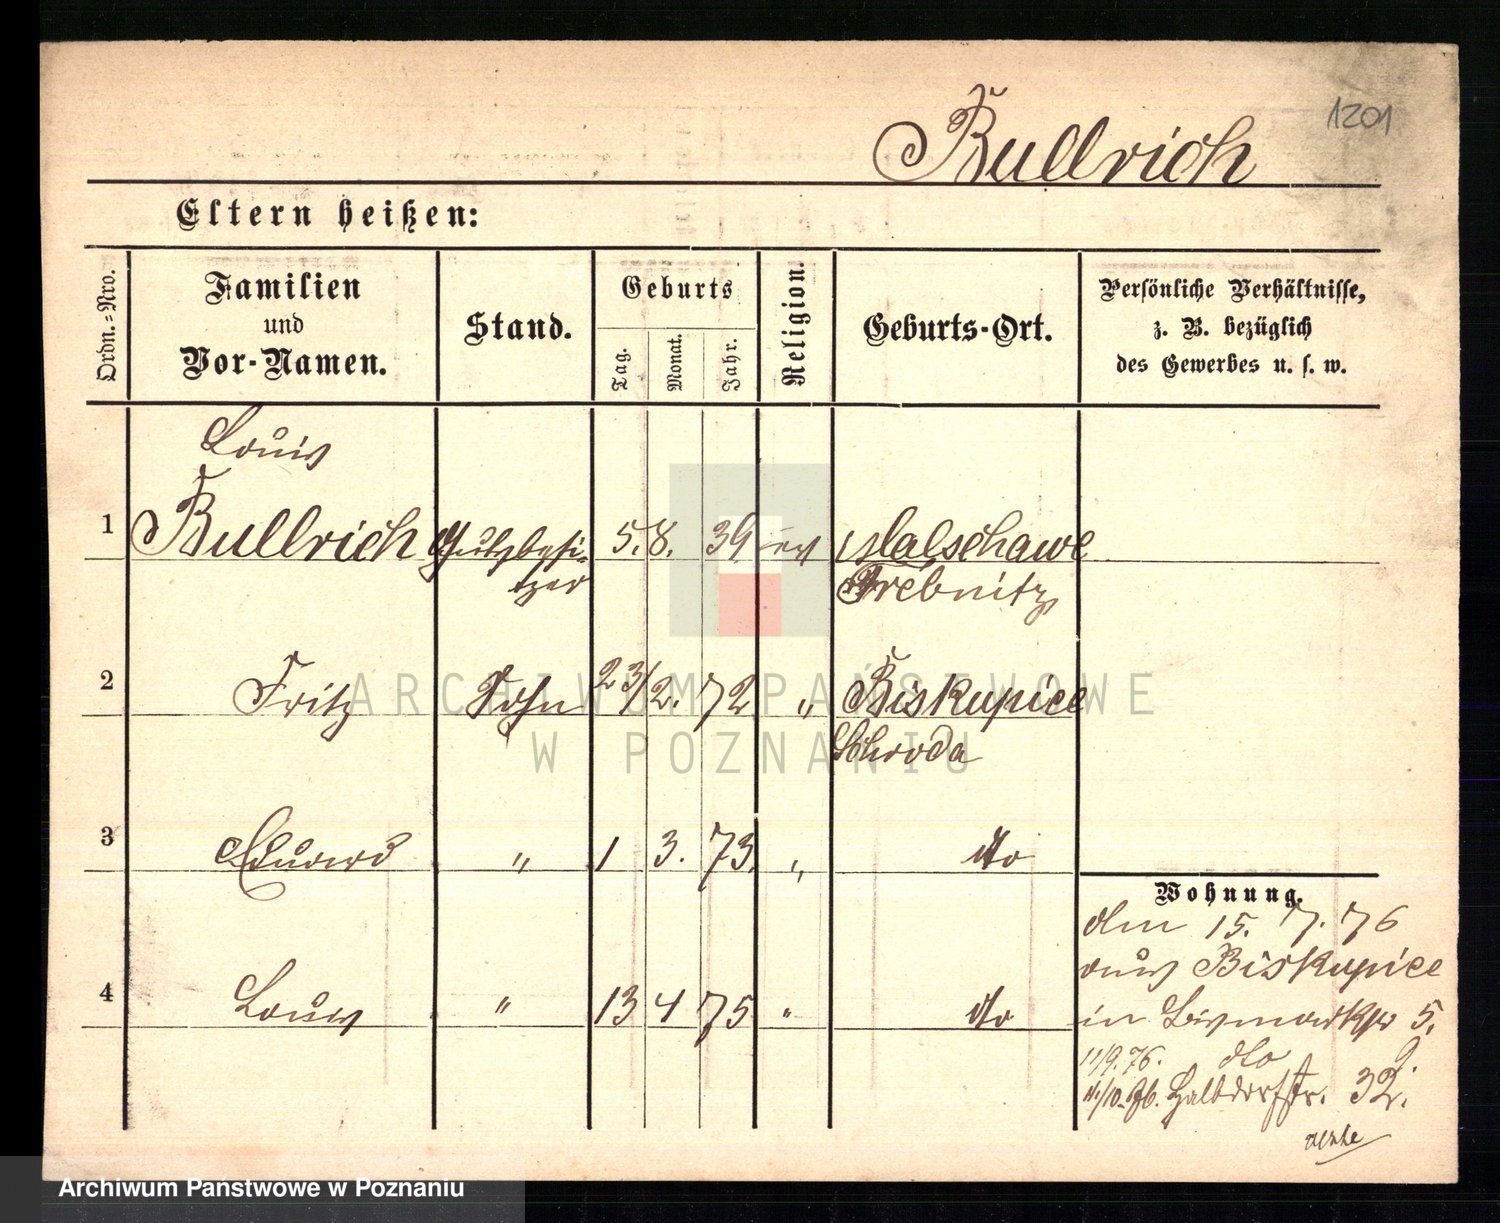 1201
Bullrich
Eltern heißen:
Ordn.-Nro.
Familien
und
Vor-Namen.
Stand.
Geburts
Tag.
Monat.
Jahr.
Religion.
Geburts-Ort.
Persönliche Verhältnisse,
z. B. bezüglich
des Gewerbes u. s. w.
Louis
1 Bullrich Gutsbesi- 5. 8. 39 ev Malschawe
tzer Trebnitz
2 Fritz Sohn 23/ 2. 72 " Biskupice
Schroda
3 Eduard " 1 3. 73. " do
4 Louis " 13 4 75 " do
Wohnung.
den 15. 7. 76
aus Biskupice
in Bismarkstr 5.
11/9. 76. do 9.
11/10. 76. Halbdorfstr. 32.
ARCHIWUM PAŃSTWOWE
W POZNANIU
Archiwum Państwowe w Poznaniu